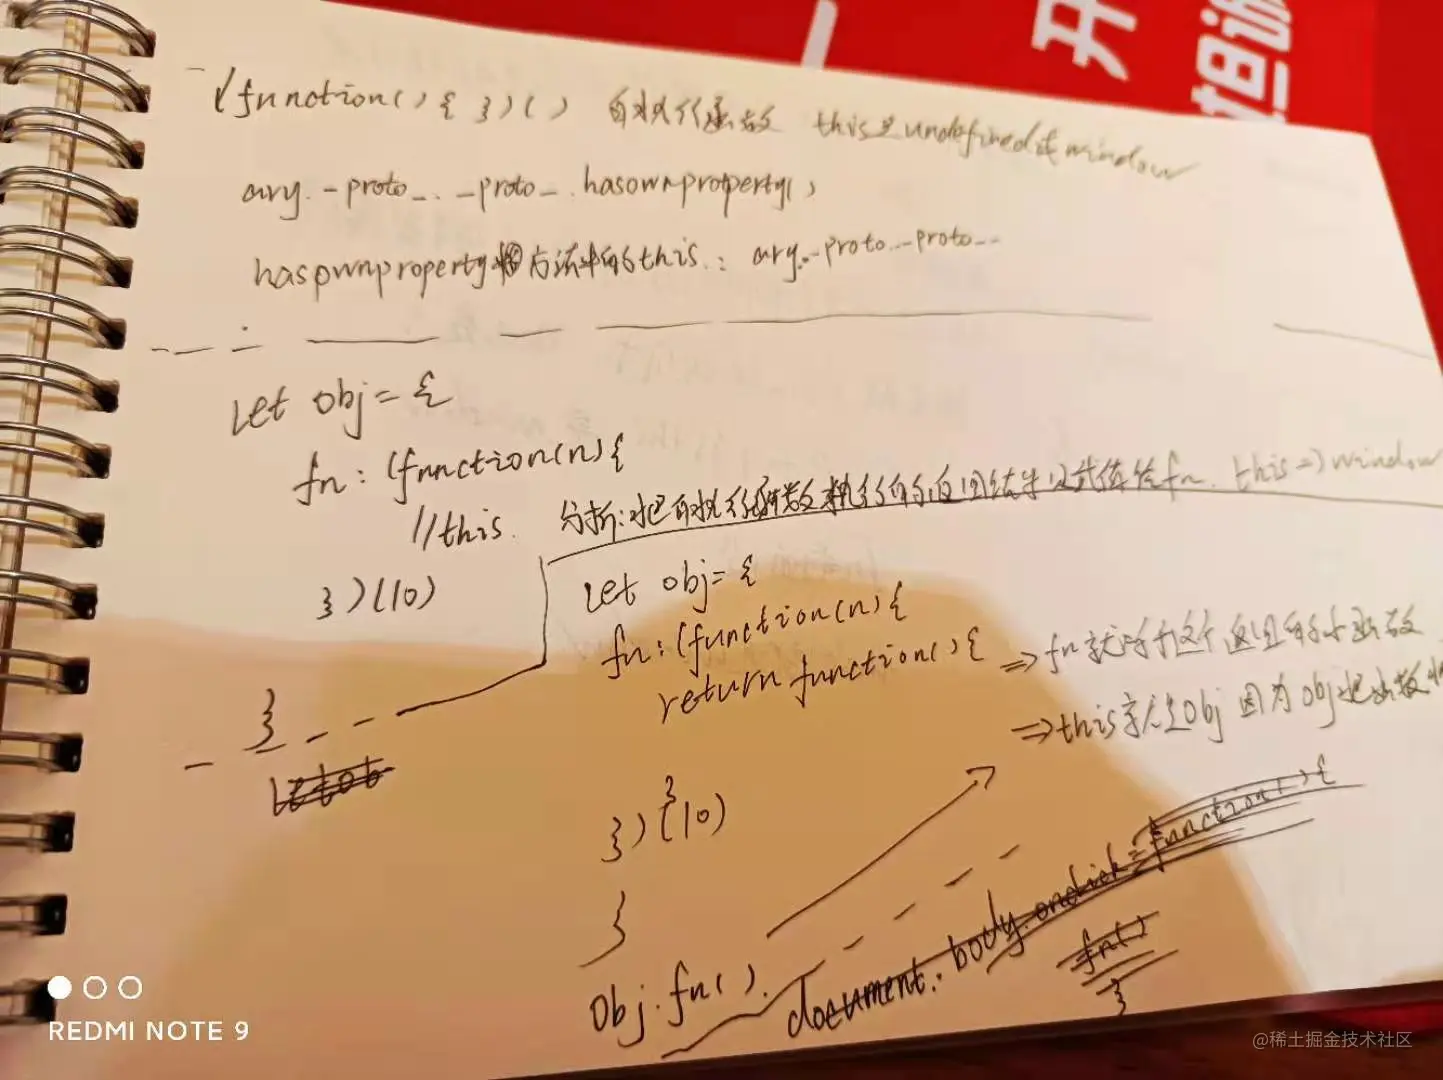 开
坦诚
(function(){ })() 自执行函数 this是undefined或window
ary.__proto__.__proto__.hasownproperty()
hasownproperty方法中的this:ary.__proto__.__proto__
let obj={
fn:(function(n){
//this 分析:把自执行函数执行的返回结果赋值给fn. this=>window
})(10)
}
let obj={
fn:(function(n){
return function(){ => fn就等于这个返回的小函数
=> this就是obj 因为obj把函数
}
})(10)
}
obj.fn().
document.body.onclick=function(){
fn()
}
REDMI NOTE 9
@稀土掘金技术社区